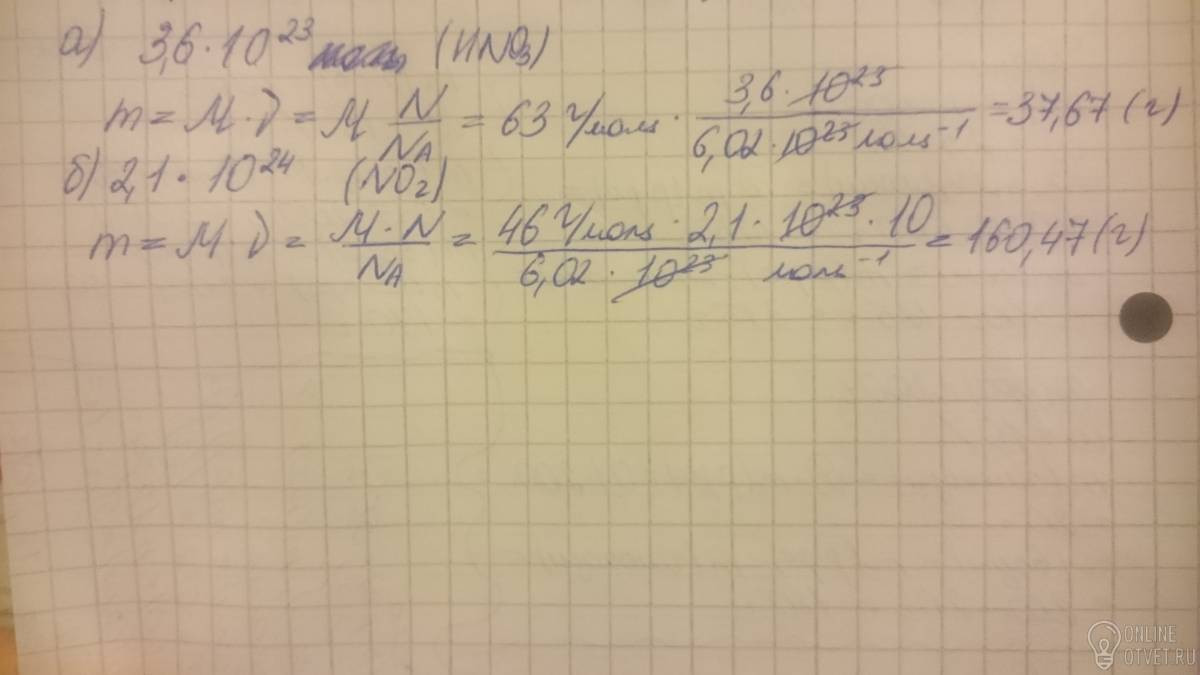 а) 3,6 · 10²³ (HNO₃)
m = M · ν = M N/N_A = 63 г/моль · 3,6 · 10²³ / 6,02 · 10²³ моль⁻¹ = 37,67 (г)
б) 2,1 · 10²⁴ (NO₂)
m = M · ν = M · N / N_A = 46 г/моль · 2,1 · 10²³ · 10 / 6,02 · 10²³ моль⁻¹ = 160,47 (г)
ONLINE
OTVET.RU